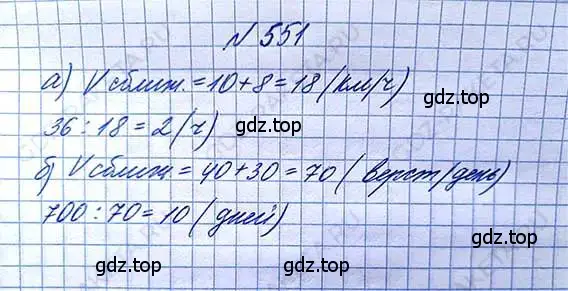 № 551
а) Vсближ. = 10 + 8 = 18 (км/ч)
36 : 18 = 2 (ч)
б) Vсближ = 40 + 30 = 70 (верст/день)
700 : 70 = 10 (дней)
gdz.top
gdz.top
gdz.top
gdz.top
gdz.top